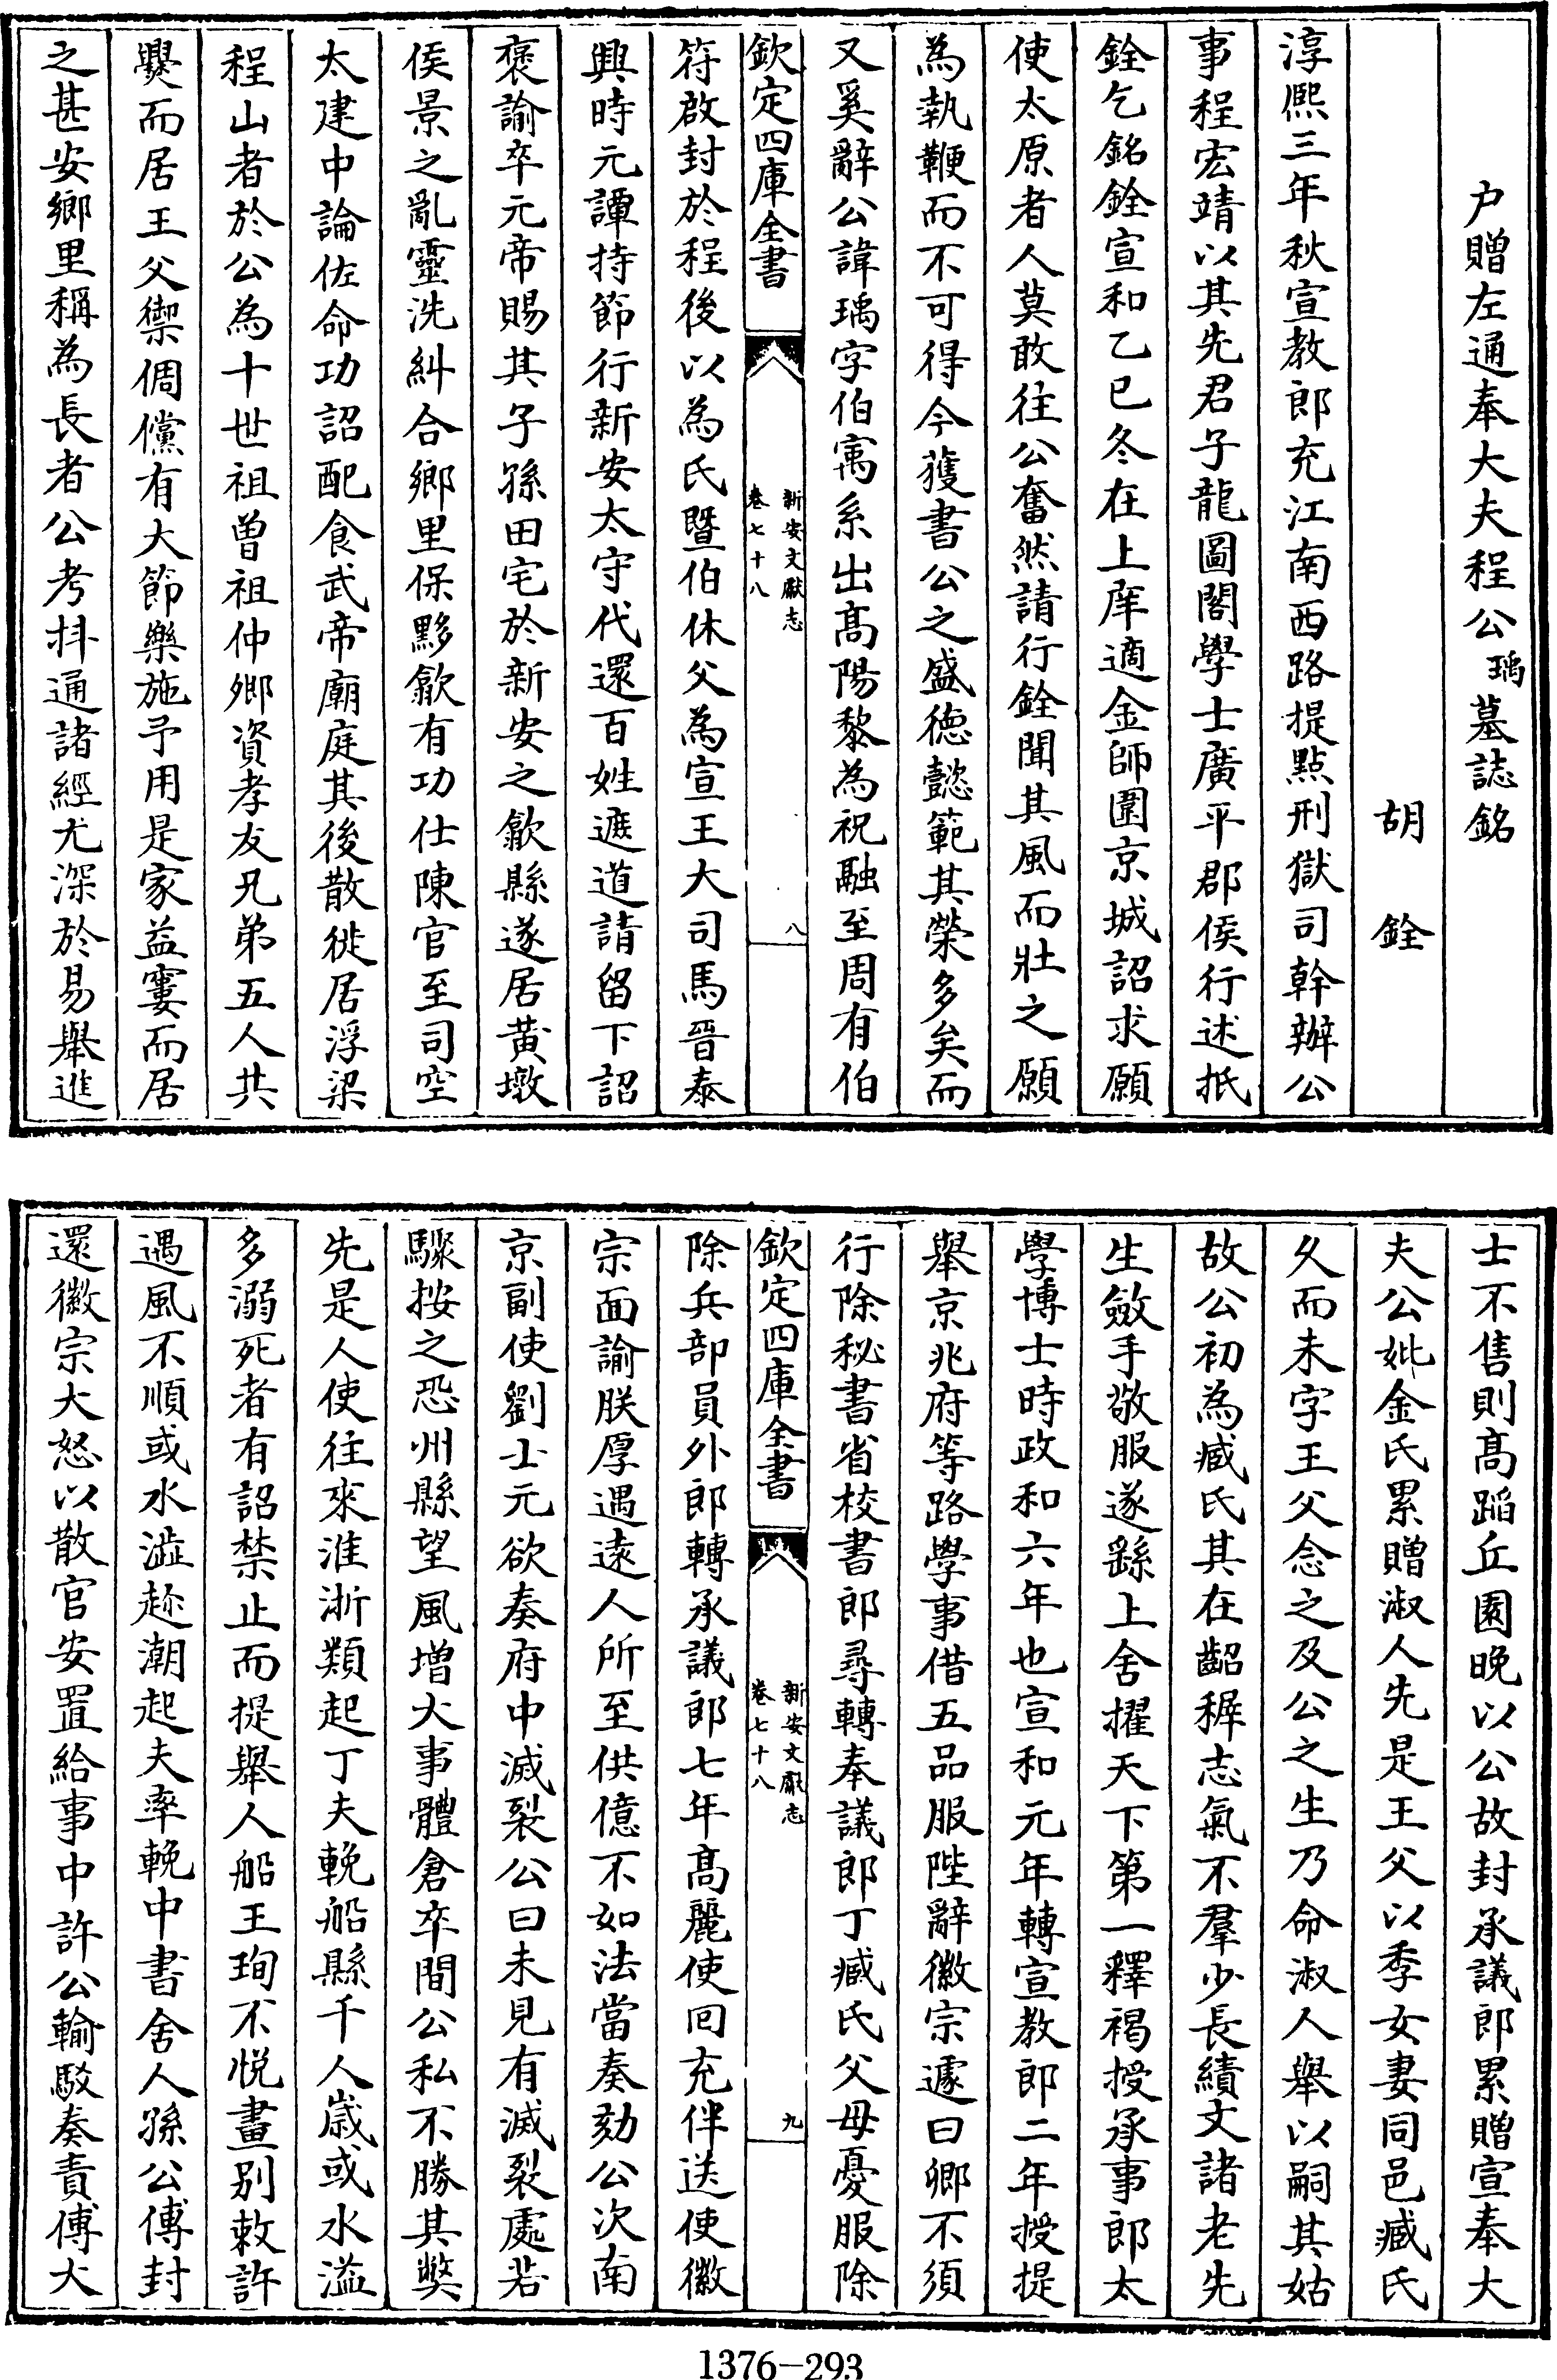 户贈左通奉大夫程公瑀墓誌銘
胡銓
淳熙三年秋宣教郎充江南西路提點刑獄司幹辦公
事程宏靖以其先君子龍圖閣學士廣平郡侯行述抵
銓乞銘銓宣和乙巳冬在上庠適金師圍京城詔求願
使太原者人莫敢往公奮然請行銓聞其風而壯之願
為執鞭而不可得今獲書公之盛德懿範其榮多矣而
又奚辭公諱瑀字伯寓系出髙陽黎為祝融至周有伯
欽定四庫全書
新安文獻志
卷七十八
八
符啟封於程後以為氏暨伯休父為宣王大司馬晉泰
興時元譚持節行新安太守代還百姓遮道請留下詔
褒諭卒元帝賜其子孫田宅於新安之歙縣遂居黄墩
侯景之亂靈洗糾合鄉里保黟歙有功仕陳官至司空
太建中論佐命功詔配食武帝廟庭其後散徙居浮梁
程山者於公為十世祖曾祖仲卿資孝友兄弟五人共
㸑而居王父禦倜儻有大節樂施予用是家益窶而居
之甚安鄉里稱為長者公考抖通諸經尤深於易舉進
士不售則髙蹈丘園晚以公故封承議郎累贈宣奉大
夫公妣金氏累贈淑人先是王父以季女妻同邑臧氏
久而未字王父念之及公之生乃命淑人舉以嗣其姑
故公初為臧氏其在齠穉志氣不羣少長績文諸老先
生斂手敬服遂繇上舍擢天下第一釋褐授承事郎太
學博士時政和六年也宣和元年轉宣教郎二年授提
舉京兆府等路學事借五品服陛辭徽宗遽曰卿不須
行除秘書省校書郎尋轉奉議郎丁臧氏父母憂服除
欽定四庫全書
新安文獻志
卷七十八
九
除兵部員外郎轉承議郎七年髙麗使回充伴送使徽
宗面諭朕厚遇逺人所至供億不如法當奏劾公次南
京副使劉士元欲奏府中滅裂公曰未見有滅裂處若
驟按之恐州縣望風增大事體倉卒間公私不勝其獘
先是人使往來淮浙類起丁夫輓船縣千人嵗或水溢
多溺死者有詔禁止而提舉人船王珣不悦畫别敕許
遇風不順或水澁趂潮起夫率輓中書舍人孫公傅封
還徽宗大怒以散官安置給事中許公翰駁奏責傅大